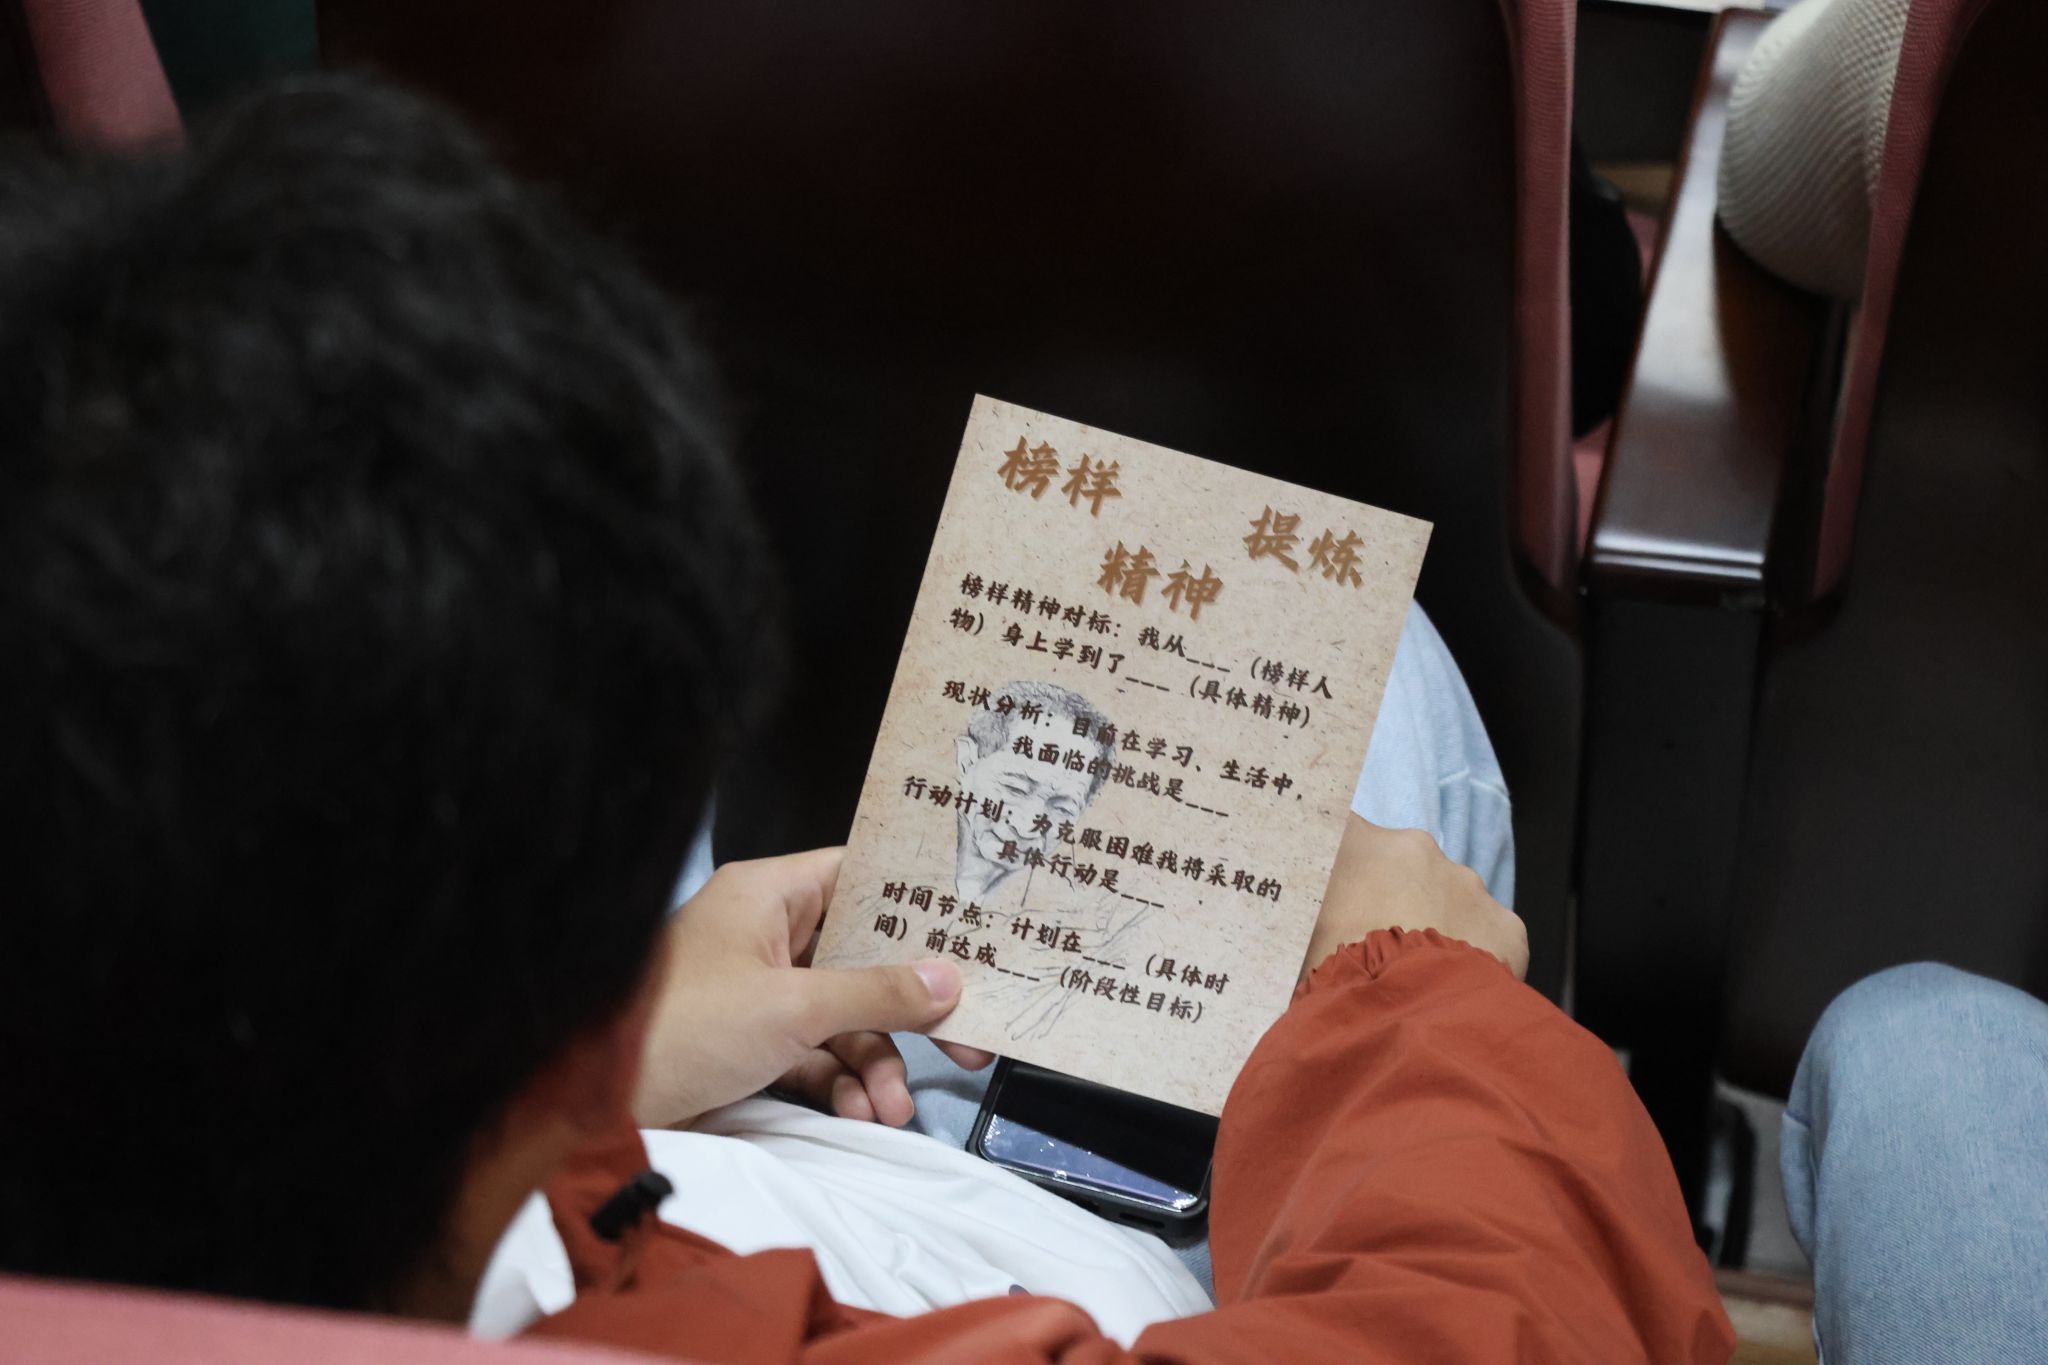 榜样
提炼
精神
榜样精神对标：我从___（榜样人
物）身上学到了___（具体精神）
现状分析：目前在学习、生活中，
我面临的挑战是___
行动计划：为克服困难我将采取的
具体行动是___
时间节点：计划在___（具体时
间）前达成___（阶段性目标）